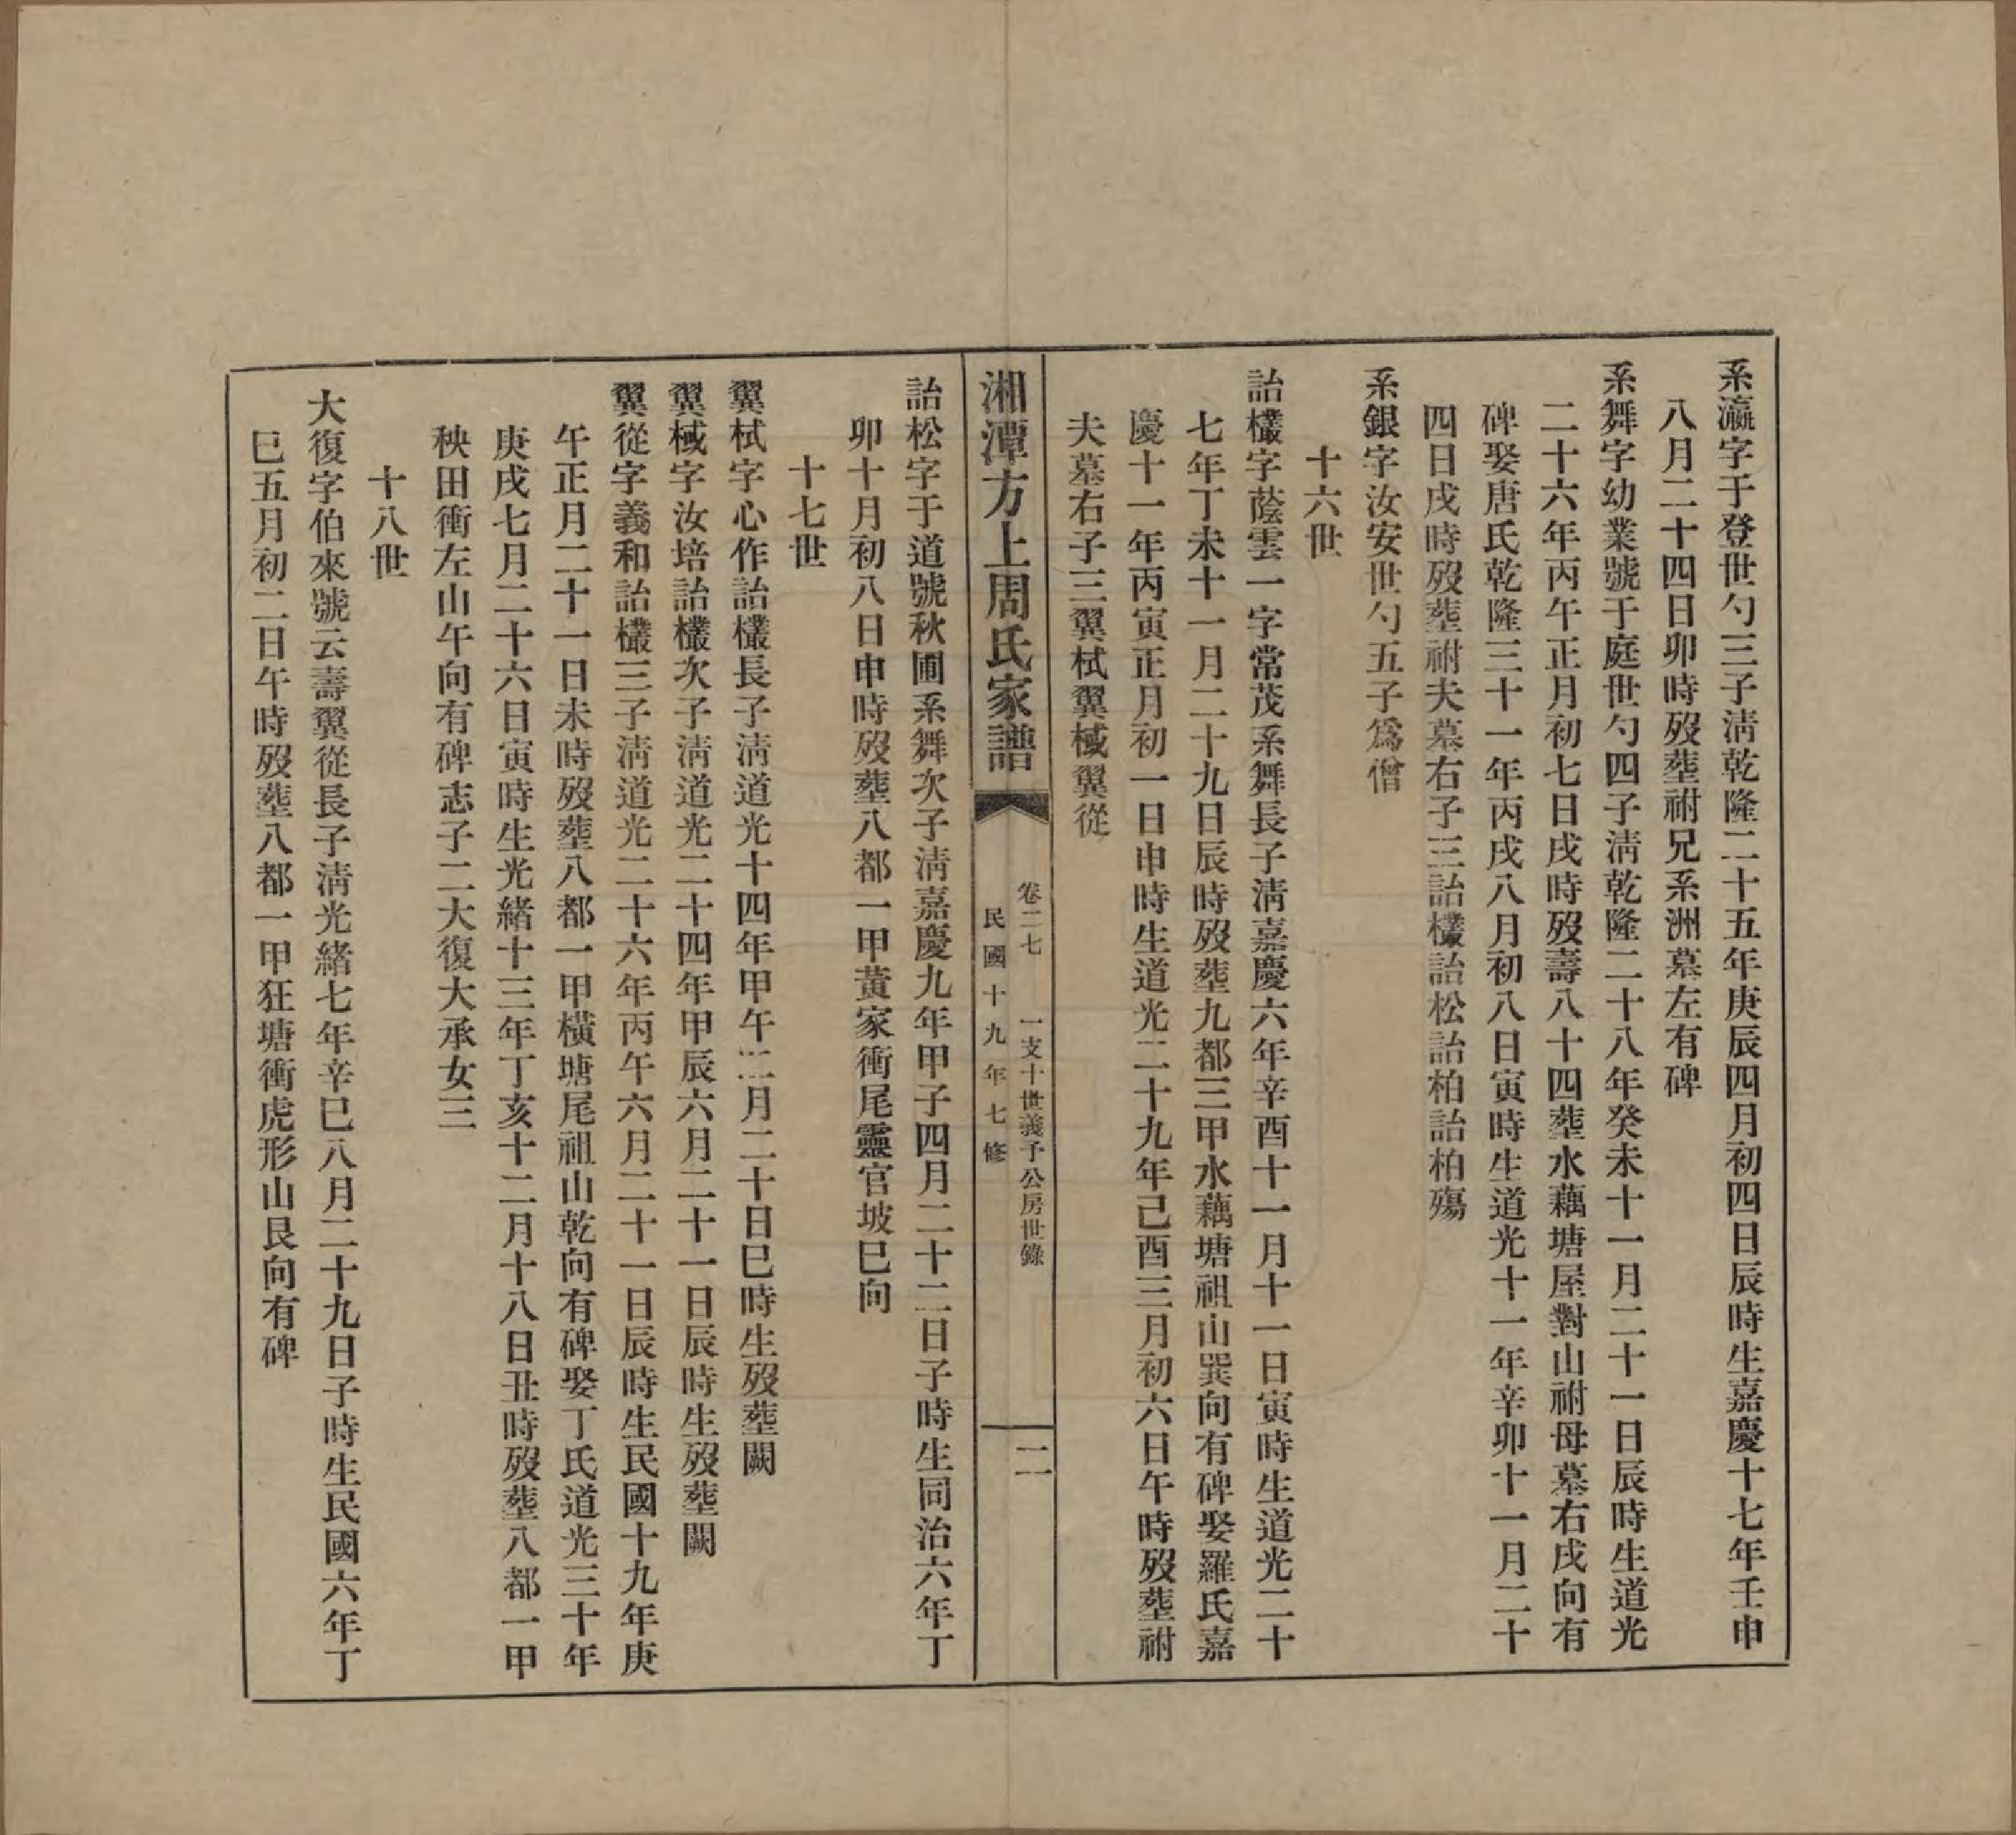 系瀛字于登世勺三子淸乾隆二十五年庚辰四月初四日辰時生嘉慶十七年壬申
八月二十四日卯時歿塟祔兄系洲墓左有碑
系舞字幼業號于庭世勺四子淸乾隆二十八年癸未十一月二十一日辰時生道光
二十六年丙午正月初七日戌時歿壽八十四塟水藕塘屋對山祔母墓右戌向有
碑娶唐氏乾隆三十一年丙戌八月初八日寅時生道光十一年辛卯十一月二十
四日戌時歿塟祔夫墓右子三詒欉詒松詒柏詒柏殤
系銀字汝安世勺五子爲僧
十六世
詒欉字蔭雲一字常茂系舞長子淸嘉慶六年辛酉十一月十一日寅時生道光二十
七年丁未十一月二十九日辰時歿塟九都三甲水藕塘祖山巽向有碑娶羅氏嘉
慶十一年丙寅正月初一日申時生道光二十九年己酉三月初六日午時歿塟祔
夫墓右子三翼栻翼棫翼從
湘潭方上周氏家譜
卷二七 一支十世義予公房世錄
民國十九年七修
二
詒松字于道號秋圃系舞次子淸嘉慶九年甲子四月二十二日子時生同治六年丁
卯十月初八日申時歿塟八都一甲黃家衝尾靈官坡巳向
十七世
翼栻字心作詒欉長子淸道光十四年甲午二月二十日巳時生歿塟闕
翼棫字汝培詒欉次子淸道光二十四年甲辰六月二十一日辰時生歿塟闕
翼從字義和詒欉三子淸道光二十六年丙午六月二十一日辰時生民國十九年庚
午正月二十一日未時歿塟八都一甲橫塘尾祖山乾向有碑娶丁氏道光三十年
庚戌七月二十六日寅時生光緒十三年丁亥十二月十八日丑時歿塟八都一甲
秧田衝左山午向有碑志子二大復大承女三
十八世
大復字伯來號云壽翼從長子淸光緒七年辛巳八月二十九日子時生民國六年丁
巳五月初二日午時歿塟八都一甲狂塘衝虎形山艮向有碑